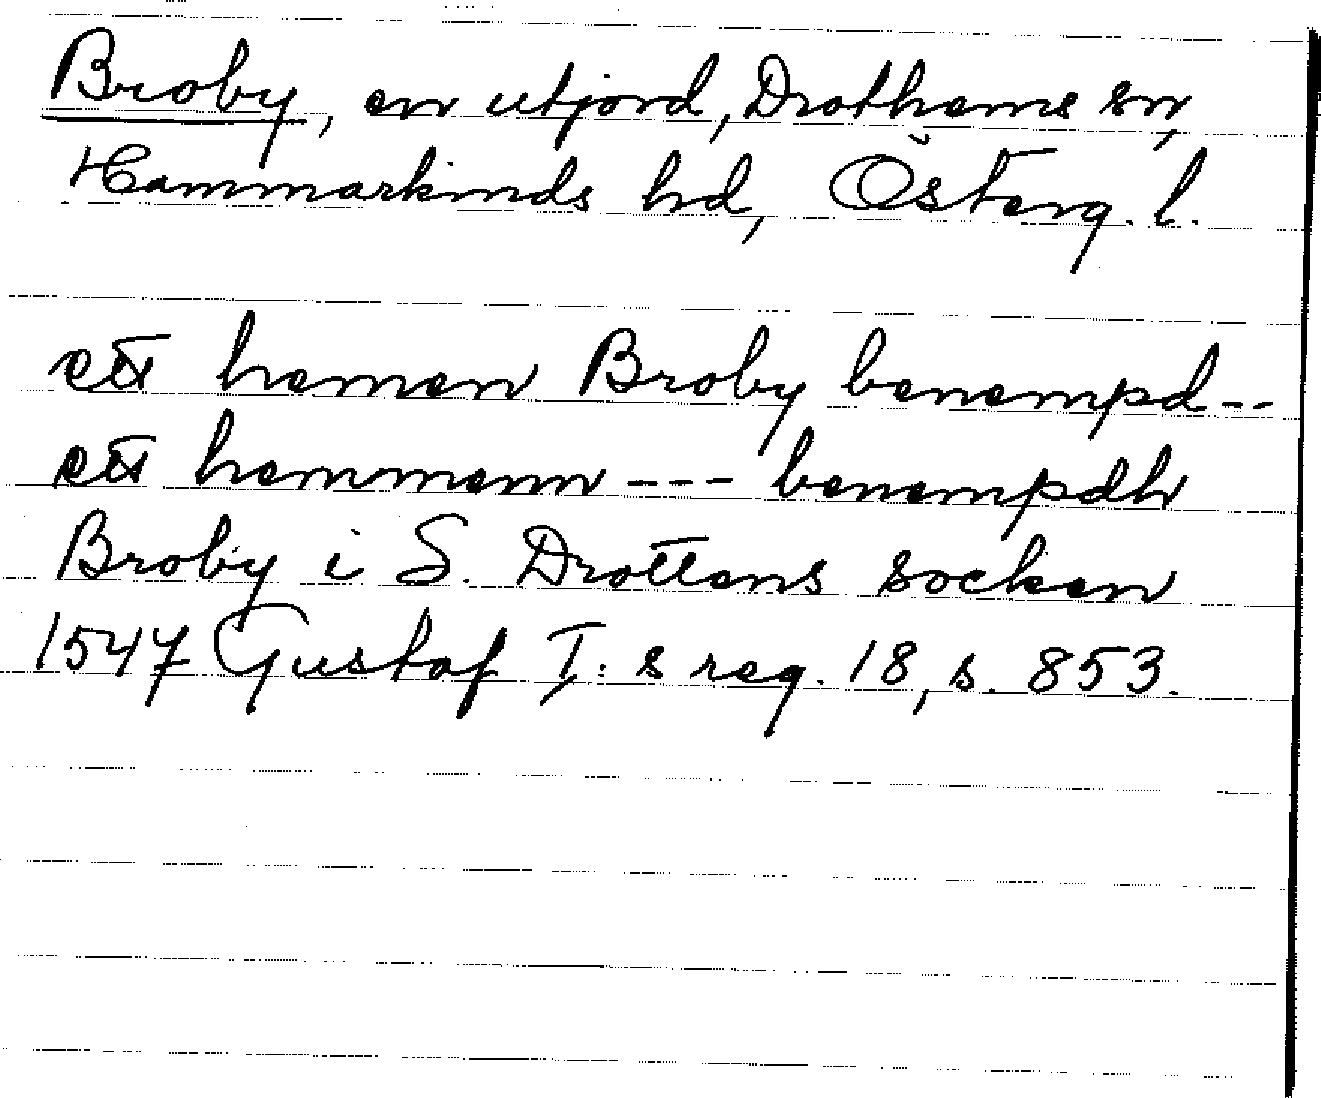 Broby, en utjord, Drothems sn,
Hammarkinds hd, Österg. l.
ett hemen Broby benempd--
ett hemmenn --- benempdh
Broby i S. Drottens socken
1547 Gustaf I:s reg. 18, s. 853.